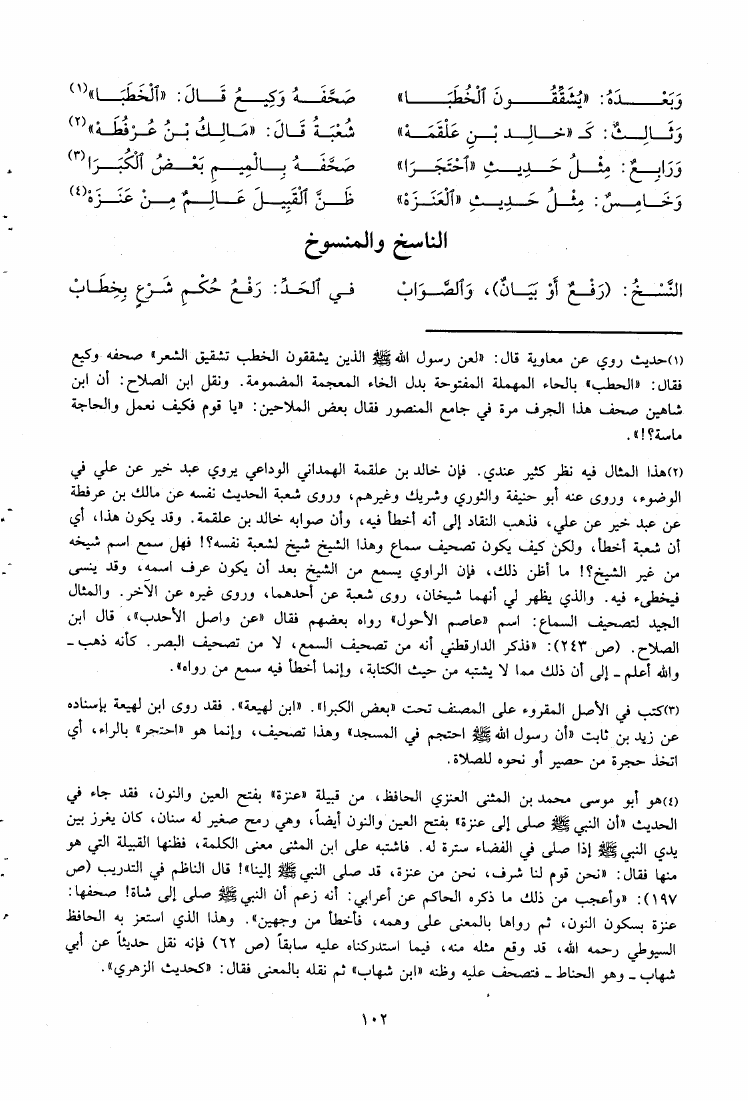 وَبَعْـــدَهُ: «يُشَقِّقُـــونَ ٱلْخُطَبَـــا» صَحَّفَـــهُ وَكِيـــعٌ قَـــالَ: «ٱلْحَطَبَـــا»(١)
وَثَـالِـثٌ: كَـ «خَـالِـدِ بْـنِ عَلْقَمَـهْ» شُعْبَـةُ قَـالَ: «مَـالِكُ بْـنُ عُـرْفُطَهْ»(٢)
وَرَابِـعٌ: مِثْـلُ حَـدِيـثِ «ٱحْتَجَـرَا» صَحَّفَـهُ بِـالْمِيـمِ بَعْـضُ ٱلْكُبَـرَا(٣)
وَخَـامِـسٌ: مِثْـلُ حَـدِيـثِ «ٱلْعَنَـزَهْ» ظَـنَّ ٱلْقَبِيـلَ عَـالِـمٌ مِـنْ عَنَـزَهْ(٤)
الناسخ والمنسوخ
النَّسْـخُ: (رَفْـعٌ أَوْ بَيَـانٌ)، وَٱلصَّـوَابْ فـي ٱلحَـدِّ: رَفْـعُ حُكْـمِ شَـرْعٍ بِخِطَـابْ
(١)حديث روي عن معاوية قال: «لعن رسول الله ﷺ الذين يشققون الخطب تشقيق الشعر» صحفه وكيع
فقال: «الحطب» بالحاء المهملة المفتوحة بدل الخاء المعجمة المضمومة. ونقل ابن الصلاح: أن ابن
شاهين صحف هذا الحرف مرة في جامع المنصور فقال بعض الملاحين: «يا قوم فكيف نعمل والحاجة
ماسة؟!».
(٢)هذا المثال فيه نظر كثير عندي. فإن خالد بن علقمة الهمداني الوداعي يروي عبد خير عن علي في
الوضوء، وروى عنه أبو حنيفة والثوري وشريك وغيرهم، وروى شعبة الحديث نفسه عن مالك بن عرفطة
عن عبد خير عن علي، فذهب النقاد إلى أنه أخطأ فيه، وأن صوابه خالد بن علقمة. وقد يكون هذا، أي
أن شعبة أخطأ، ولكن كيف يكون تصحيف سماع وهذا الشيخ شيخ لشعبة نفسه؟! فهل سمع اسم شيخه
من غير الشيخ؟! ما أظن ذلك، فإن الراوي يسمع من الشيخ بعد أن يكون عرف اسمه، وقد ينسى
فيخطىء فيه. والذي يظهر لي أنهما شيخان، روى شعبة عن أحدهما، وروى غيره عن الآخر. والمثال
الجيد لتصحيف السماع: اسم «عاصم الأحول» رواه بعضهم فقال «عن واصل الأحدب»، قال ابن
الصلاح. (ص ٢٤٣): «فذكر الدارقطني أنه من تصحيف السمع، لا من تصحيف البصر. كأنه ذهب ـ
والله أعلم ـ إلى أن ذلك مما لا يشتبه من حيث الكتابة، وإنما أخطأ فيه سمع من رواه».
(٣)كتب في الأصل المقروء على المصنف تحت «بعض الكبرا». «ابن لهيعة». فقد روى ابن لهيعة بإسناده
عن زيد بن ثابت «أن رسول الله ﷺ احتجم في المسجد» وهذا تصحيف، وإنما هو «احتجر» بالراء، أي
اتخذ حجرة من حصير أو نحوه للصلاة.
(٤)هو أبو موسى محمد بن المثنى العنزي الحافظ، من قبيلة «عنزة» بفتح العين والنون، فقد جاء في
الحديث «أن النبي ﷺ صلى إلى عنزة» بفتح العين والنون أيضاً، وهي رمح صغير له سنان، كان يغرز بين
يدي النبي ﷺ إذا صلى في الفضاء سترة له. فاشتبه على ابن المثنى معنى الكلمة، فظنها القبيلة التي هو
منها فقال: «نحن قوم لنا شرف، نحن من عنزة، قد صلى النبي ﷺ إلينا»! قال الناظم في التدريب (ص
١٩٧): «وأعجب من ذلك ما ذكره الحاكم عن أعرابي: أنه زعم أن النبي ﷺ صلى إلى شاة! صحفها:
عنزة بسكون النون، ثم رواها بالمعنى على وهمه، فأخطأ من وجهين». وهذا الذي استعز به الحافظ
السيوطي رحمه الله، قد وقع مثله منه، فيما استدركناه عليه سابقاً (ص ٦٢) فإنه نقل حديثاً عن أبي
شهاب ـ وهو الحناط ـ فتصحف عليه وظنه «ابن شهاب» ثم نقله بالمعنى فقال: «كحديث الزهري».
١٠٢